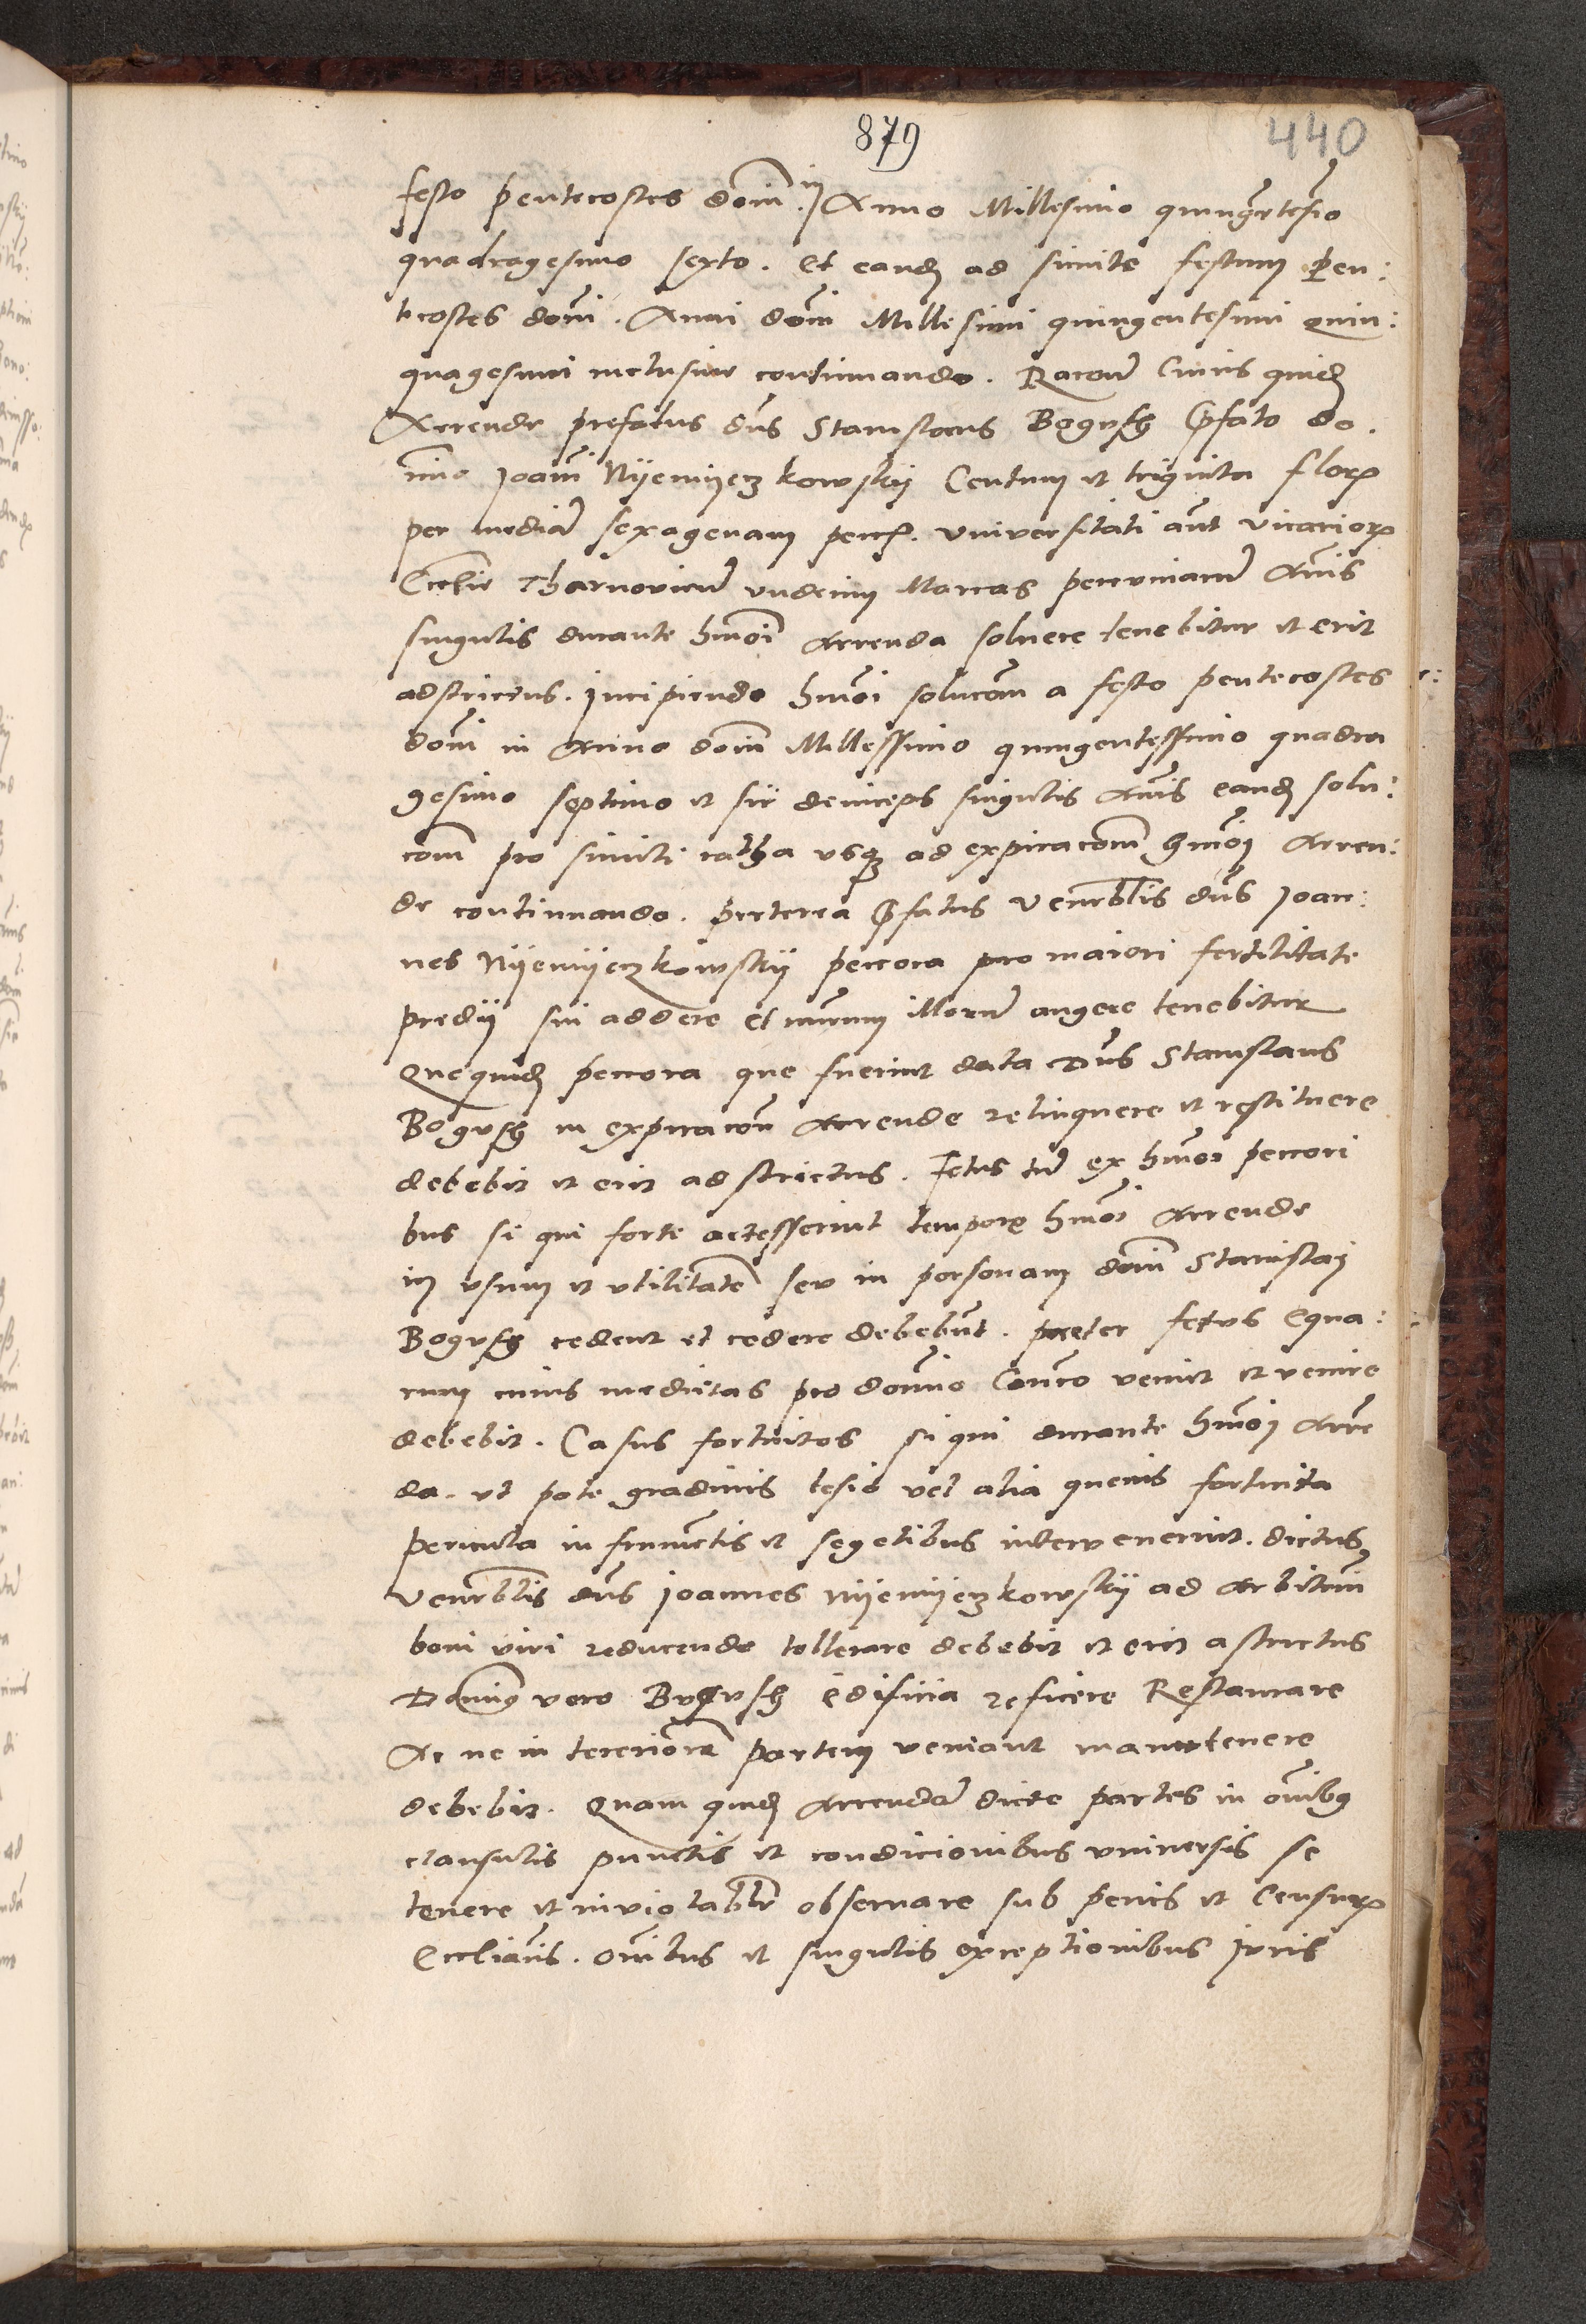 879
440
festo pentecostes domi. in Anno Millesimo quingentesio
quadragesimo sexto. Et eandem ad simile festum Pen:
tecostes domi. Anni domi Millesimi quingentesimi quin:
quagesimi inclusive continuando. Racone Cuius quidem
Arrende prefatus dns Stanislaus Bogusch Pfato do.
mino Joani Nyemyeczkowsky Centum et triginta florᷓ
per mediam sexagenam pecc. Universitati aut vicariorᷓ
Ecclie Tharnovien undecim Marcas pecuniarum Annis
singulis durante hmoi Arrenda solvere tenebitur et erit
adstrictus. Incipiendo hmoi solucom a festo pentecostes
domi in Anno domi Millessimo quingentessimo quadra
gesimo septimo et sic deinceps singulis Annis eandem solu:
com pro simili ratha usque ad expiracom hmoi Arren:
de continuando. preterea Pfatus venerblis dns Joan:
nes Nyemyeczkowsky peccora pro maiori fertilitate
predii sui addere et numerum illorum augere tenebitur
Que quidem peccora que fuerint data Dns Stanislaus
Bogusch in expiracom Arrende relinquere et restituere
debebit et erit adstrictus. Fetus tum ex hmoi peccori
bus si qui forte accesserint tempore hmoi Arrende
in usum et utilitatem seu in personam domi Stanislai
Bogusch cedent et cedere debebunt. preter fetus Equa:
rum cuius medietas pro domino Canco veniet et venire
debebit. Casus fortuitos si qui durante hmoi Arre
da. ut pote grandinis lesio vel alia quevis fortuita
pericula in frumentis et segetibus intervenerint. dictus
Venerblis dns Joannes Nyemyeczkowsky ad Arbitrium
boni viri reducendo tollerare debebit et erit astrictus
Dominus vero Bogusch Edificia reficere Restaurare
Ac ne in tereriorem partem veniant manutenere
debebit. Quam quidem Arrendam dicte partes in omnibus
clausulis punctis et condicionibus universis se
tenere et inviolablr observare sub penis et Censurᷓ
Eccliacis. Omibus et singulis exceptionibus Juris